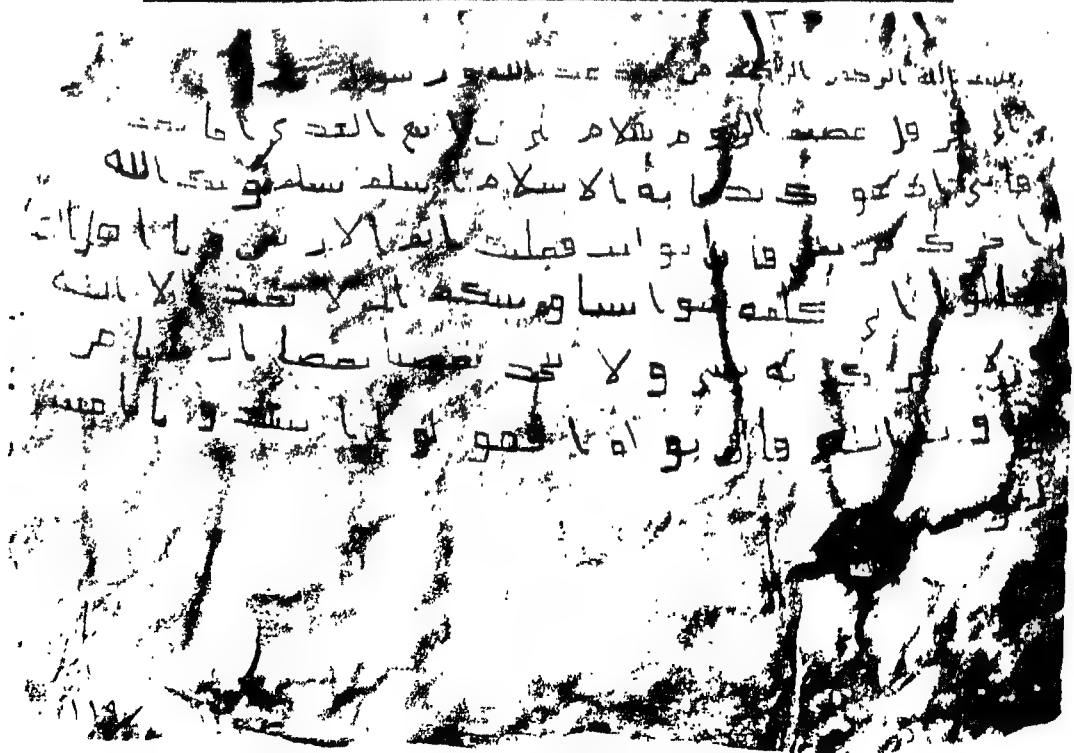 بسم الله الرحمن الرحيم من محمد عبد الله و رسو
هرقل عصيم الروم سلام على من اتبع الهدى اما بعد
فانى ادعوك بدعايه الاسلام اسلم تسلم يوتك الله
اجرك مرتين فان توليت فعليك اثم الاريسين و يا اهل ا
تعالوا الى كلمه سوا بيننا وبينكم الا نعبد الا الله
ولا نشرك به شى و لا يتخذ بعضنا بعضا اربابا من
دون الله فان تولوا فقولو اشهدو بانا مسلمو